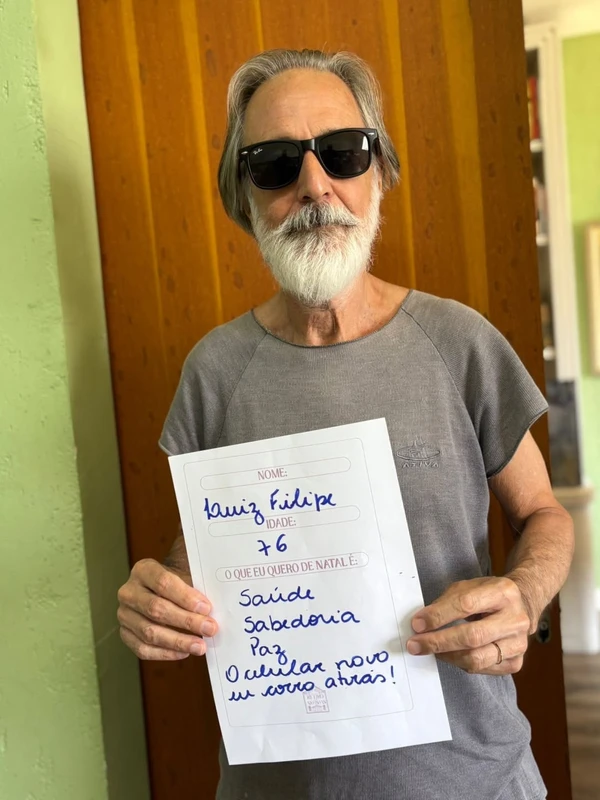 Ray-Ban
ATIVA
NOME:
Luiz Filipe
IDADE:
76
O QUE EU QUERO DE NATAL É:
Saúde
Sabedoria
Paz
O celular novo
eu corro atrás!